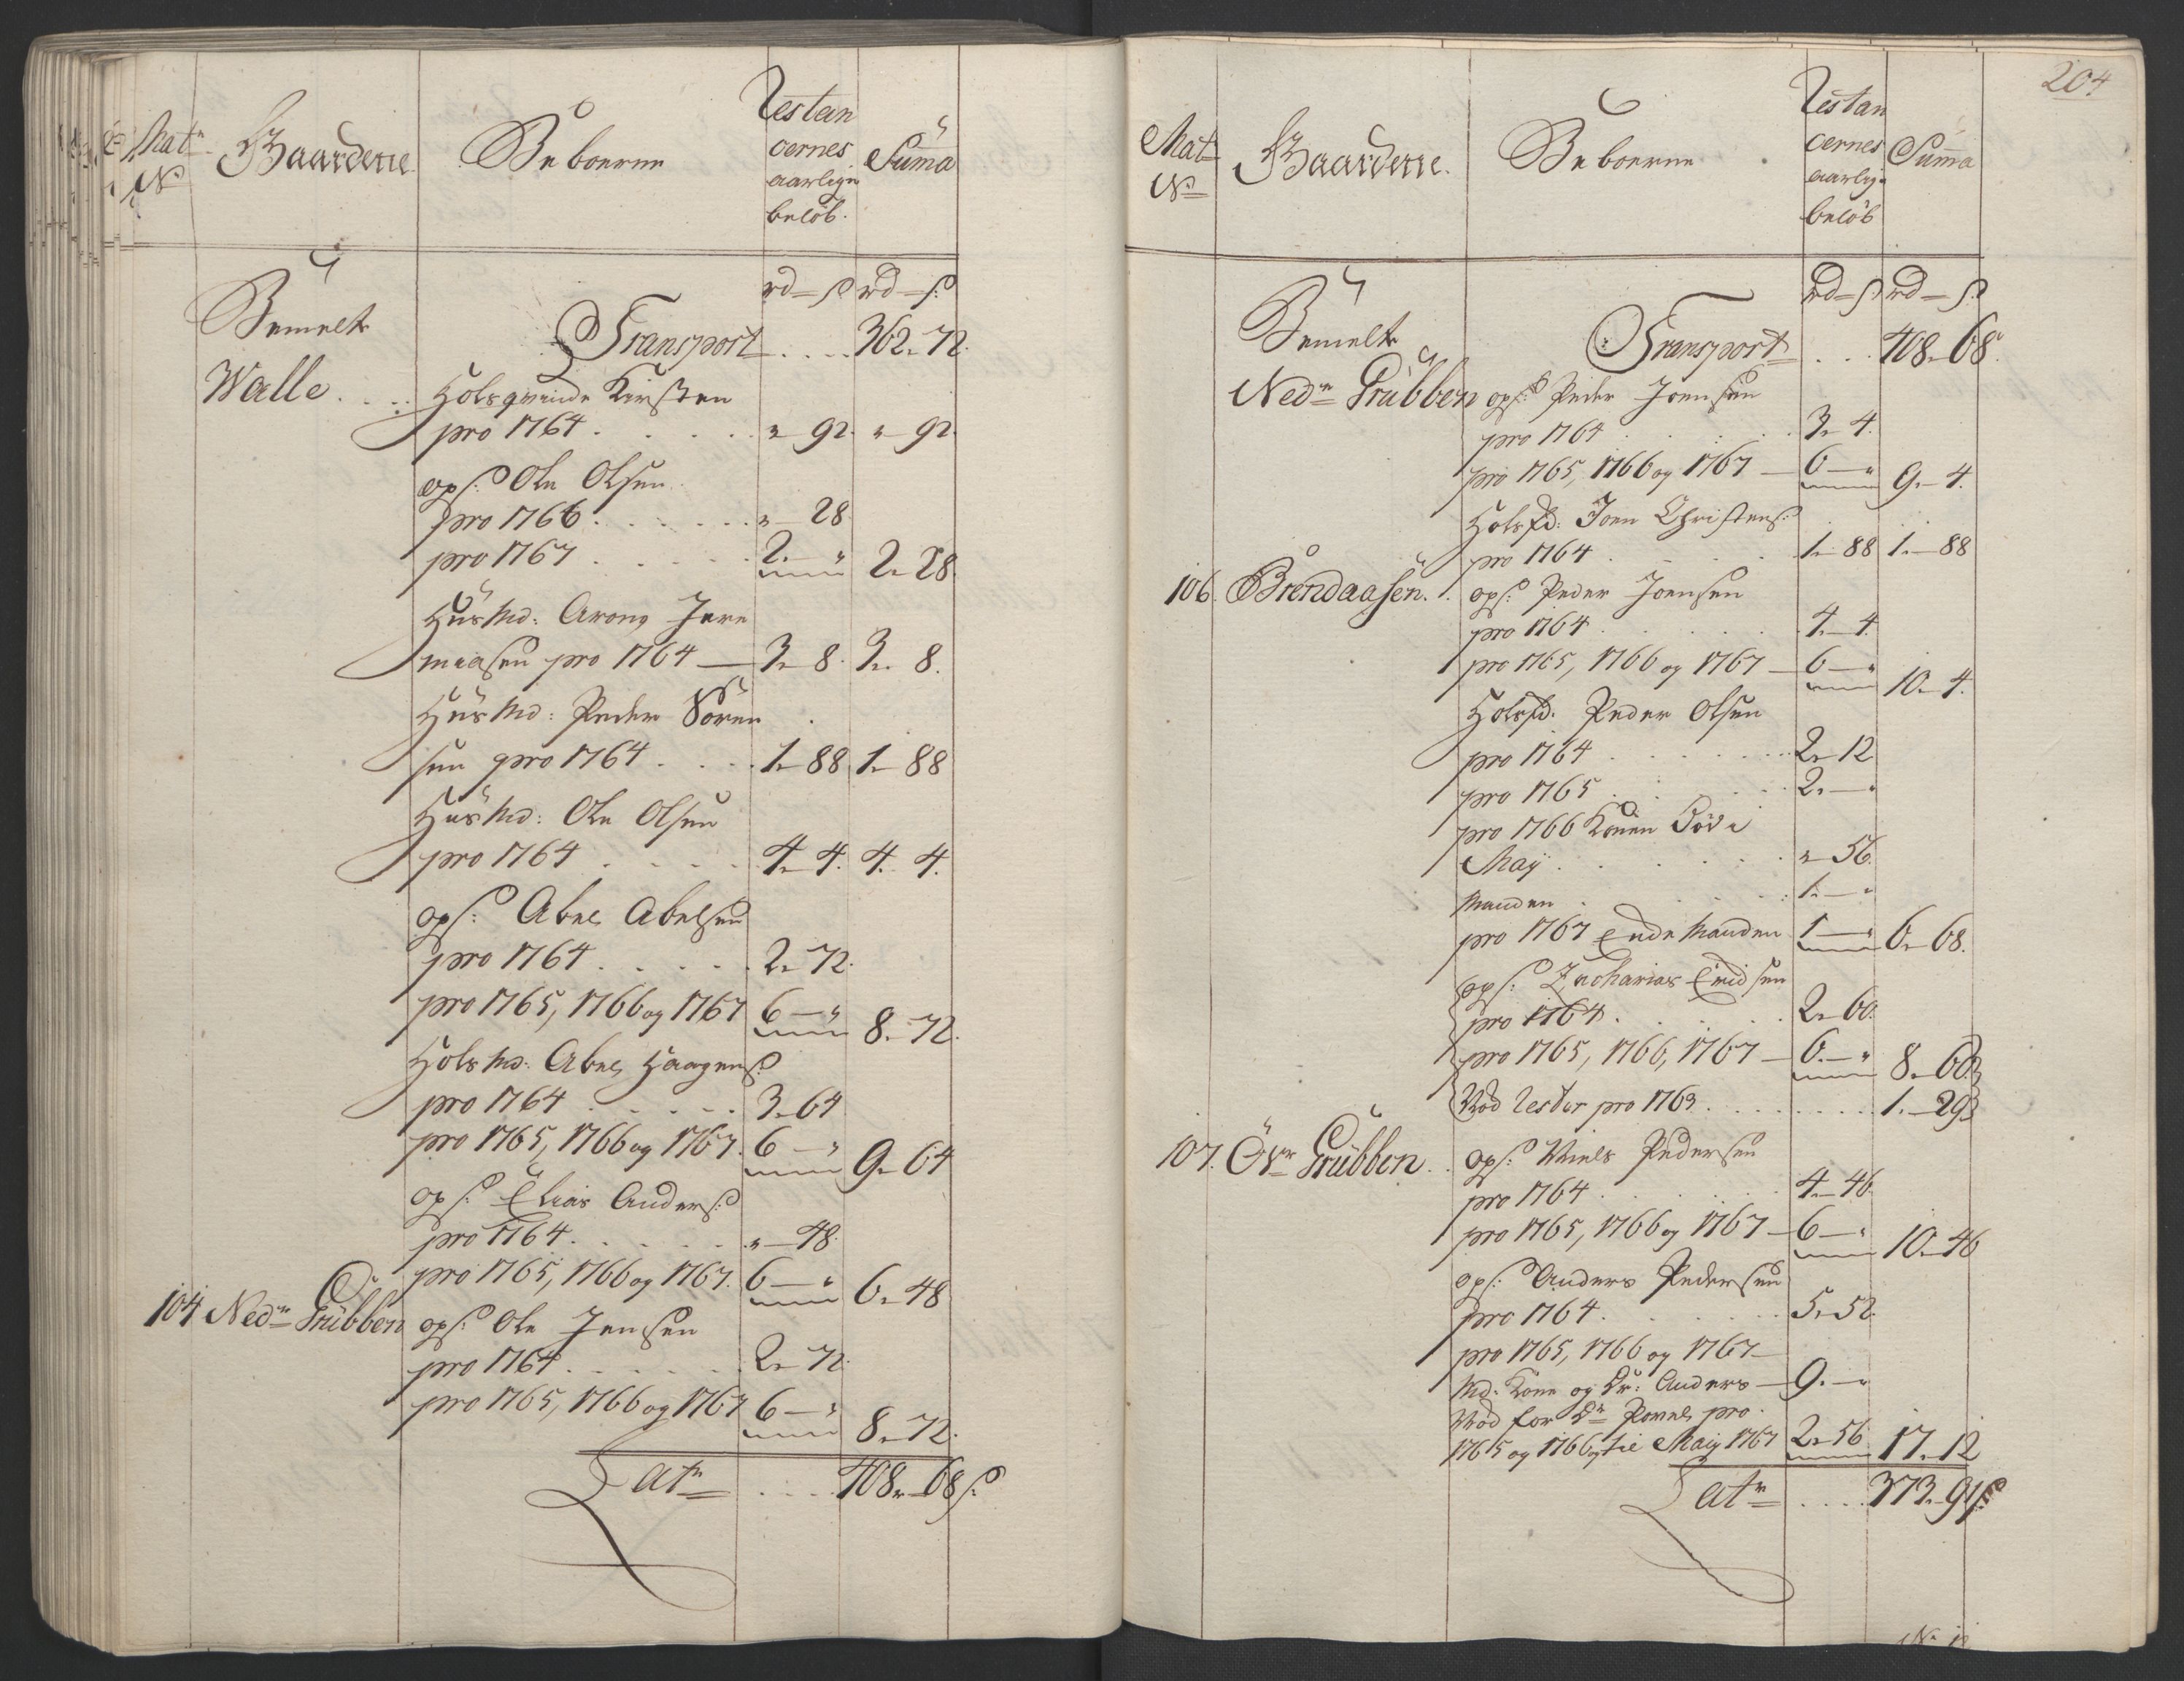 Mat:r
No
Gaardene
Beboerne
Restan
cernes
aarlige
beløb.
Summa
rd – s: rd – s:
Bemelte
Walle . . .
Transport . . . . 362 – 72.
Holsqvinde Kirsten
pro 1764 . . . . . „ – 92. „ – 92.
ops: Ole Olsen
pro 1766 . . . . . . „ – 28
pro 1767 . . . . . 2. – „ 2 – 28.
Husmd: Arong Jere
miasen pro 1764 — 3 – 8. 3 – 8.
Husmd: Peder Sören
sen pro 1764 . . . . 1 – 88 1 – 88
Husmd: Ole Olsen
pro 1764 . . . . . 4 – 4. 4 – 4.
ops: Abel Abelsen
pro 1764 . . . . . 2 – 72.
pro 1765, 1766 og 1767 6 – „ 8 – 72.
Holsmd: Abel Haagens:
pro 1764 . . . . . 3 – 64
pro 1765, 1766 og 1767. 6 – „ 9 – 64
ops: Elias Anders:
pro 1764. . . . . . „ – 48.
pro 1765, 1766 og 1767. 6 – „ 6 – 48
104 Ned:r Grübben ops: Ole Jensen
pro 1764 . . . . . . 2 – 72.
pro 1765, 1766 og 1767 6 – „ 8 – 72.
Lat:r . . . . 408 – 68 s:
204
Mat:
No
Gaardene.
Beboerne
Restan
cernes
aarlige
beløb
Summa
rd – s: rd – s:
Bemelte
Transport . . . 408 – 68.
Ned:r Grübben ops: Peder Joensen
pro 1764 . . . . . 3 – 4.
pro 1765, 1766 og 1767 — 6 – „ 9 – 4.
Holsfd: Joen Christens:
pro 1764 . . . . . 1 – 88 1. – 88
106. Brendaasen. . ops: Peder Joensen
pro 1764 . . . . . 4 – 4.
pro 1765, 1766 og 1767 — 6 – „ 10 – 4.
Holsfd: Peder Olsen
pro 1764 . . . . . . 2 – 12
pro 1765 . . . . . 2. – „
pro 1766 Konen Död i
Maij . . . . . . „ – 56.
Manden . . . . . 1. – „
pro 1767 Ende Manden 1 – „ 6 – 68.
ops: Zacharias Eridsen
pro 1764 . . . . . 2 – 60.
pro 1765, 1766, 1767 — 6. – „ 8 – 60
Nød Rester pro 1763 . . . . . . . 1. – 29
107. Öv:r Grübben . . ops: Niels Pedersen
pro 1764 . . . . . . 4 – 46.
pro 1765, 1766 og 1767 — 6 – „ 10 – 46
ops: Anders Pedersen
pro 1764. . . . . . 5 – 52.
pro 1765, 1766 og 1767 —
Md: Kone og Dr: Anders — 9. – „
Nød for D:r Povel pro
1765 og 1766 og til Maij 1767 2 – 56 17 – 12
Lat:r . . . . 373 – 91 s: